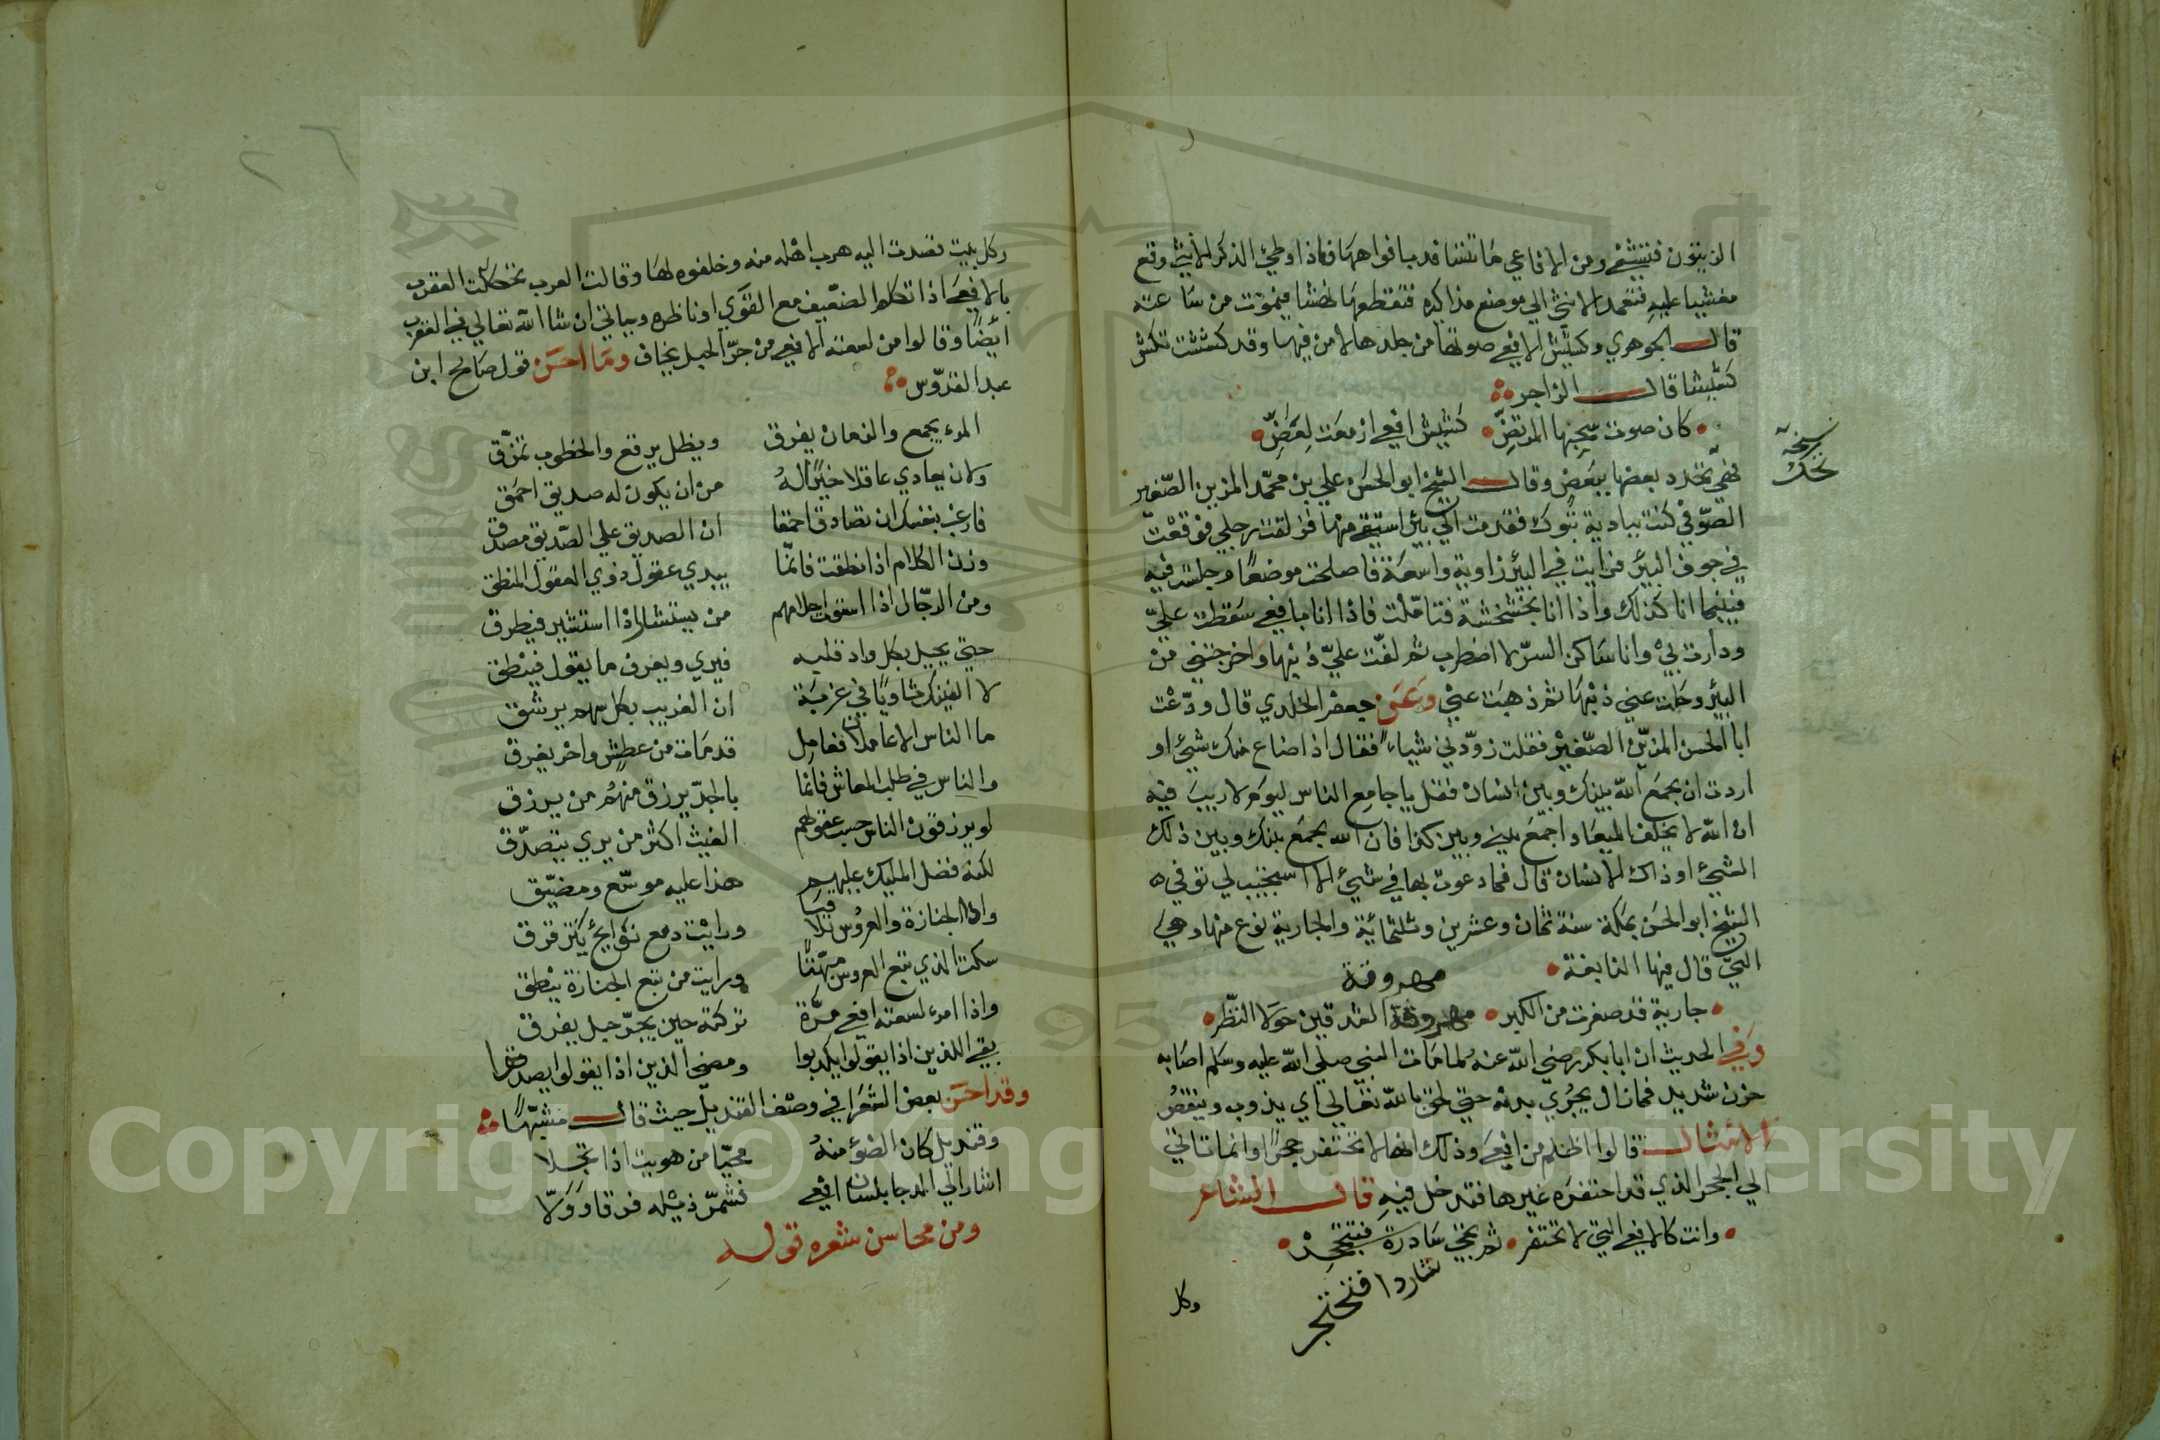 الزيتون فتشتفي ومن الافاعي ما تتسافد بافواهها فاذا وطئ الذكر الانثى وقع
مغشيا عليه فتعمد الانثى الى موضع مذاكيره فتقطعها نهشا فيموت من ساعته
قال الجوهري وكشيش الافعي صوتها من جلدها لا من فيها وقد كشت تكش
كشيشا قال الراجز
كان صوت شخبها المرتض كشيش افعي ازمعت لعض
نسخة
تحك
فهي تجرد بعضها ببعض وقال الشيخ ابو الحسن علي بن محمد المزين الصغير
الصوفي كنت ببادية تبوك فقدمت الي بئر استقي منها فزلقت رجلي فوقعت
في جوف البئر فرايت في البئر زاوية واسعة فاصلحت موضعا وجلست فيه
فبينما انا كذلك واذا انا بخشخشة فتاملت فاذا انا بافعي سقطت علي
ودارت بي وانا ساكن السر لا اضطرب ثم لفت علي ذنبها واخرجتني من
البئر وحلت عني ذنبها ثم ذهبت عني وعن جعفر الخلدي قال ودعت
ابا الحسن المزين الصغير فقلت زودني شياء فقال اذا ضاع منك شيئ او
اردت ان يجمع الله بينك وبين انسان فقل يا جامع الناس ليوم لا ريب فيه
ان الله لا يخلف الميعاد اجمع بيني وبين كذا فان الله يجمع بينك وبين ذلك
الشيئ او ذاك الانسان قال فما دعوت بها في شيئ الا استجيب لي توفي
الشيخ ابو الحسن بمكة سنة ثمان وعشرين وثلثمائة والجارية نوع منها وهي
التي قال فيها النابغة
مهروتة
جارية قد صغرت من الكبر مهروتة الشدقين حولا النظر
وفي الحديث ان ابا بكر رضي الله عنه لما مات النبي صلي الله عليه وسلم اصابه
حزن شديد فما زال يجري بدنه حتي لحق بالله تعالي اي يذوب وينقص
الامثال قالوا اظلم من افعي وذلك انها لا تحتفر جحرا وانما تاتي
الي الجحر الذي قد احتفره غيرها فتدخل فيه قال الشاعر
وانت كالافعي التي لا تحتفر ثم تجي سادرة فتنجحر
شاردا فتحتجر
وكل
وكل بيت قصدت اليه هرب اهله منه وخلفوه لها وقالت العرب تحككت العقرب
بالافعي اذا تكلم الضعيف مع القوي او ناظره وسياتي ان شا الله تعالي في العقرب
ايضا وقالوا من لسعته الافعي من جر الحبل يخاف وما احسن قول صالح ابن
عبد القدوس
المرء يجمع والزمان يفرق ويظل يرقع والخطوب تمزق
ولان يعادي عاقلا خيرا له من ان يكون له صديق احمق
فارغب بنفسك ان تصادق احمقا ان الصديق علي الصديق مصدق
وزن الكلام اذا نطقت فانما يبدي عقول ذوي العقول المنطق
ومن الرجال اذا استوت احلامهم من يستشار اذا استشير فيطرق
حتي يحيل بكل واد قلبه فيري ويعرف ما يقول فينطق
لا الفينك ثاويا في غربة ان الغريب بكل سهم يرشق
ما الناس الا عاملان فعامل قد مات من عطش واخر يغرق
والناس في طلب المعاش فانما بالجد يرزق منهم من يرزق
لو يرزقون الناس حسب عقولهم الفيت اكثر من يري يتصدق
لكنه فضل المليك عليهم هذا عليه موسع ومضيق
واذا الجنازة والعروس تلاقيا ورايت دمع نوايح يترقرق
سكت الذي تبع العروس مبهتا ورايت من تبع الجنازة ينطق
واذا امرء لسعته افعي مرة تركته حين يجر حبل يفرق
بقي اللذين اذا يقولوا يكذبوا ومضي الذين اذا يقولوا يصدقوا
وقد احسن بعض الشعرا في وصف القنديل حيث قال مشبها
وقنديل كان الضوء منه محيا من هويت اذا تجلا
اشار الي الدجا بلسان افعي فشمر ذيله فرقا وولا
ومن محاسن شعره قوله